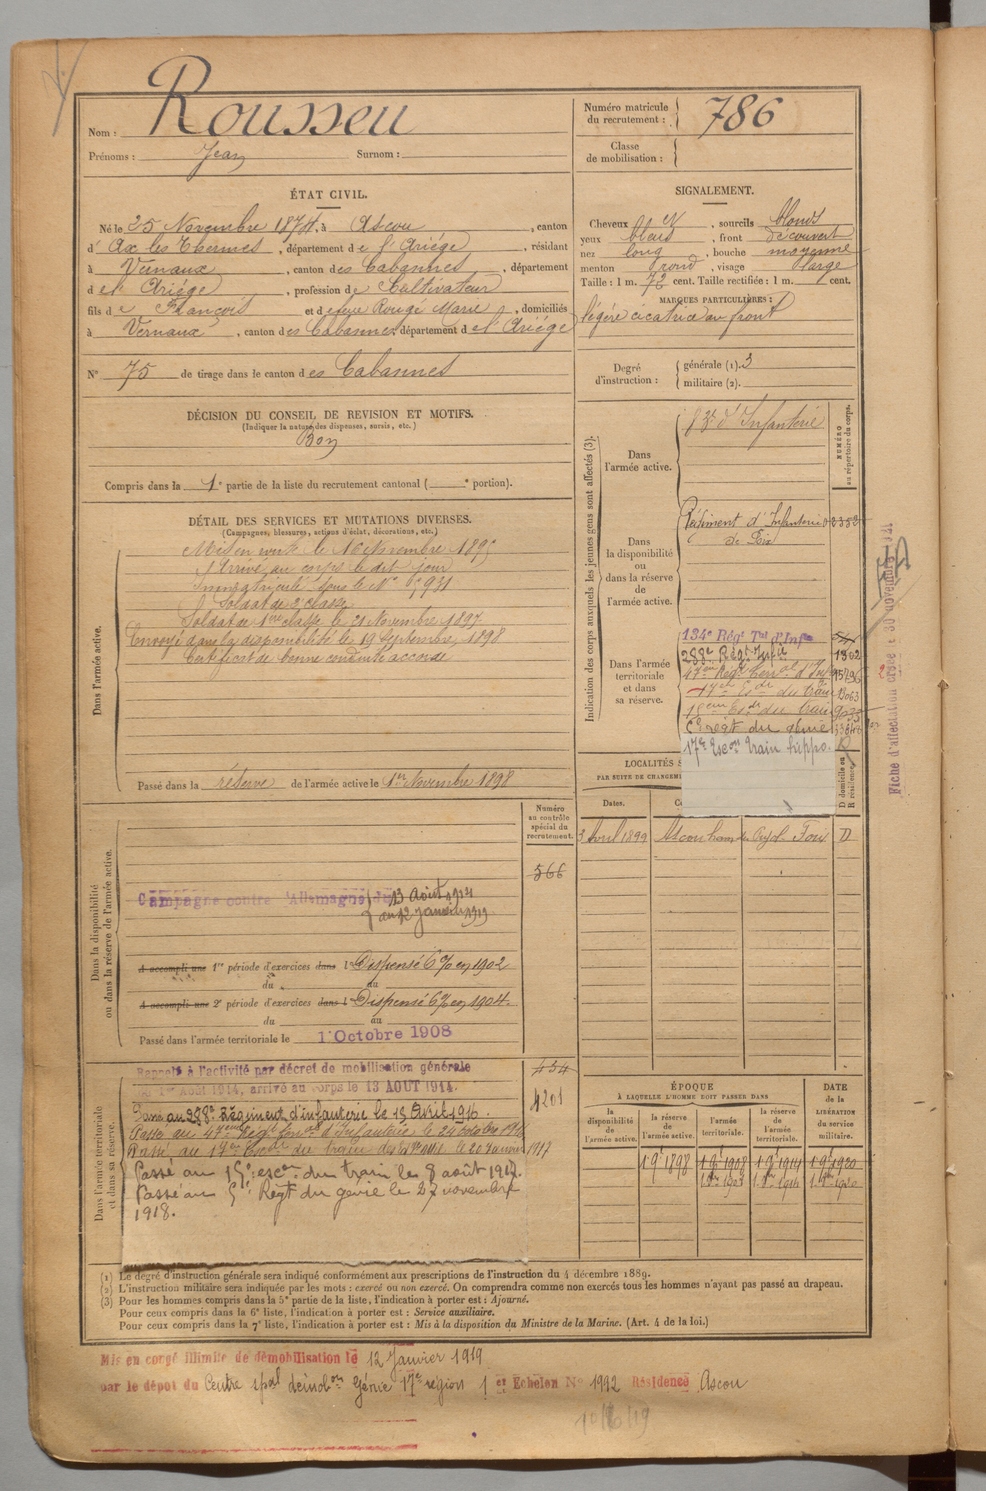 Nom : Rousseu
Prénoms : Jean Surnom :
ÉTAT CIVIL.
Né le 25 Novembre 1874, à Ascou, canton
d' Ax les Thermes, département de l'Ariége, résidant
à Vernaux, canton des Cabannes, département
de l'Ariége, profession de Cultivateur
fils de François et de feue Rouge Marie, domiciliés
à Vernaux, canton des Cabannes, département de l'Ariége
N° 75 de tirage dans le canton des Cabannes
DÉCISION DU CONSEIL DE REVISION ET MOTIFS.
(Indiquer la nature des dispenses, sursis, etc.)
Bon
Compris dans la 1e partie de la liste du recrutement cantonal ( e portion).
DÉTAIL DES SERVICES ET MUTATIONS DIVERSES.
(Campagnes, blessures, actions d'éclat, décorations, etc.)
Dans l'armée active.
Mis en route le 16 Novembre 1895
Arrivé au corps le dit jour
immatriculé sous le N°
Soldat de 2e classe
Soldat de 1ère classe le 21 Novembre 1897
Envoyé dans la disponibilité le 19 Septembre 1898
Certificat de bonne conduite accordé
Passé dans la réserve de l'armée active le 1er Novembre 1898
Dans la disponibilité
ou dans la réserve de l'armée active.
Numéro
au contrôle
spécial du
recrutement.
566
Campagne contre l'Allemagne du 13 Août 1914
au 12 Janvier 1919
A accompli une 1re période d'exercices dans l Dispensé 6% en 1902
du au
A accompli une 2e période d'exercices dans l Dispensé 6% en 1904.
du au
Passé dans l'armée territoriale le 1 Octobre 1908
Dans l'armée territoriale
et dans sa réserve.
Rappelé à l'activité par décret de mobilisation générale
du 1er Août 1914, arrivé au corps le 13 AOUT 1914.
454
4201
Passé au 288e Régiment d'infanterie le 15 Avril 1916.
Passé au 47eme Régt Terral d'Infanterie le 24 octobre 1916
Passé au 17e Escon du train des le 20 Janvier 1917
Passé au 15e escon du train le 8 août 1917.
Passé au Régt du génie le 27 novembre
1918.
Numéro matricule
du recrutement : 786
Classe
de mobilisation :
SIGNALEMENT.
Cheveux , sourcils blonds
yeux bleus, front découvert
nez long, bouche moyenne
menton rond, visage large
Taille : 1 m. 72 cent. Taille rectifiée : 1 m. cent.
MARQUES PARTICULIÈRES :
légére cicatrice au front
Degré
d'instruction :
générale (1). 3
militaire (2).
Indication des corps auxquels les jeunes gens sont affectés (3).
NUMÉRO
au répertoire du corps.
Dans
l'armée active.
d'Infanterie
Dans
la disponibilité
ou
dans la réserve
de
l'armée active.
Régiment d'Infanterie
de Foix
Dans l'armée
territoriale
et dans
sa réserve.
134e Régt Tal d'Inf
288e Régt Infie 1302
47eme Régt Terral d'Inf
17e Esc du train
15eme Esc du train
Régt du génie
17e Escon Train hippo.
Fiche d'affectation créée 30 novembre
LOCALITÉS
PAR SUITE DE CHANGEM
D domicile ou
R résidence.
Dates.
3 Avril 1899 Ascou Foix D
ÉPOQUE
À LAQUELLE L'HOMME DOIT PASSER DANS
DATE
de la
LIBÉRATION
du service
militaire.
la
disponibilité
de
l'armée active.
la réserve
de
l'armée active.
l'armée
territoriale.
la réserve
de
l'armée
territoriale.
1 9bre 1898 1 9bre 1908 1 9bre 1914 1 9bre 1920
(1) Le degré d'instruction générale sera indiqué conformément aux prescriptions de l'instruction du 4 décembre 1889.
(2) L'instruction militaire sera indiquée par les mots : exercé ou non exercé. On comprendra comme non exercés tous les hommes n'ayant pas passé au drapeau.
(3) Pour les hommes compris dans la 5e partie de la liste, l'indication à porter est : Ajourné.
Pour ceux compris dans la 6e liste, l'indication à porter est : Service auxiliaire.
Pour ceux compris dans la 7e liste, l'indication à porter est : Mis à la disposition du Ministre de la Marine. (Art. 4 de la loi.)
Mis en congé illimité de démobilisation le 12 Janvier 1919
par le dépôt du Centre spal demobon Génie 17e région 1 er Echelon N° 1992 Résidence Ascou